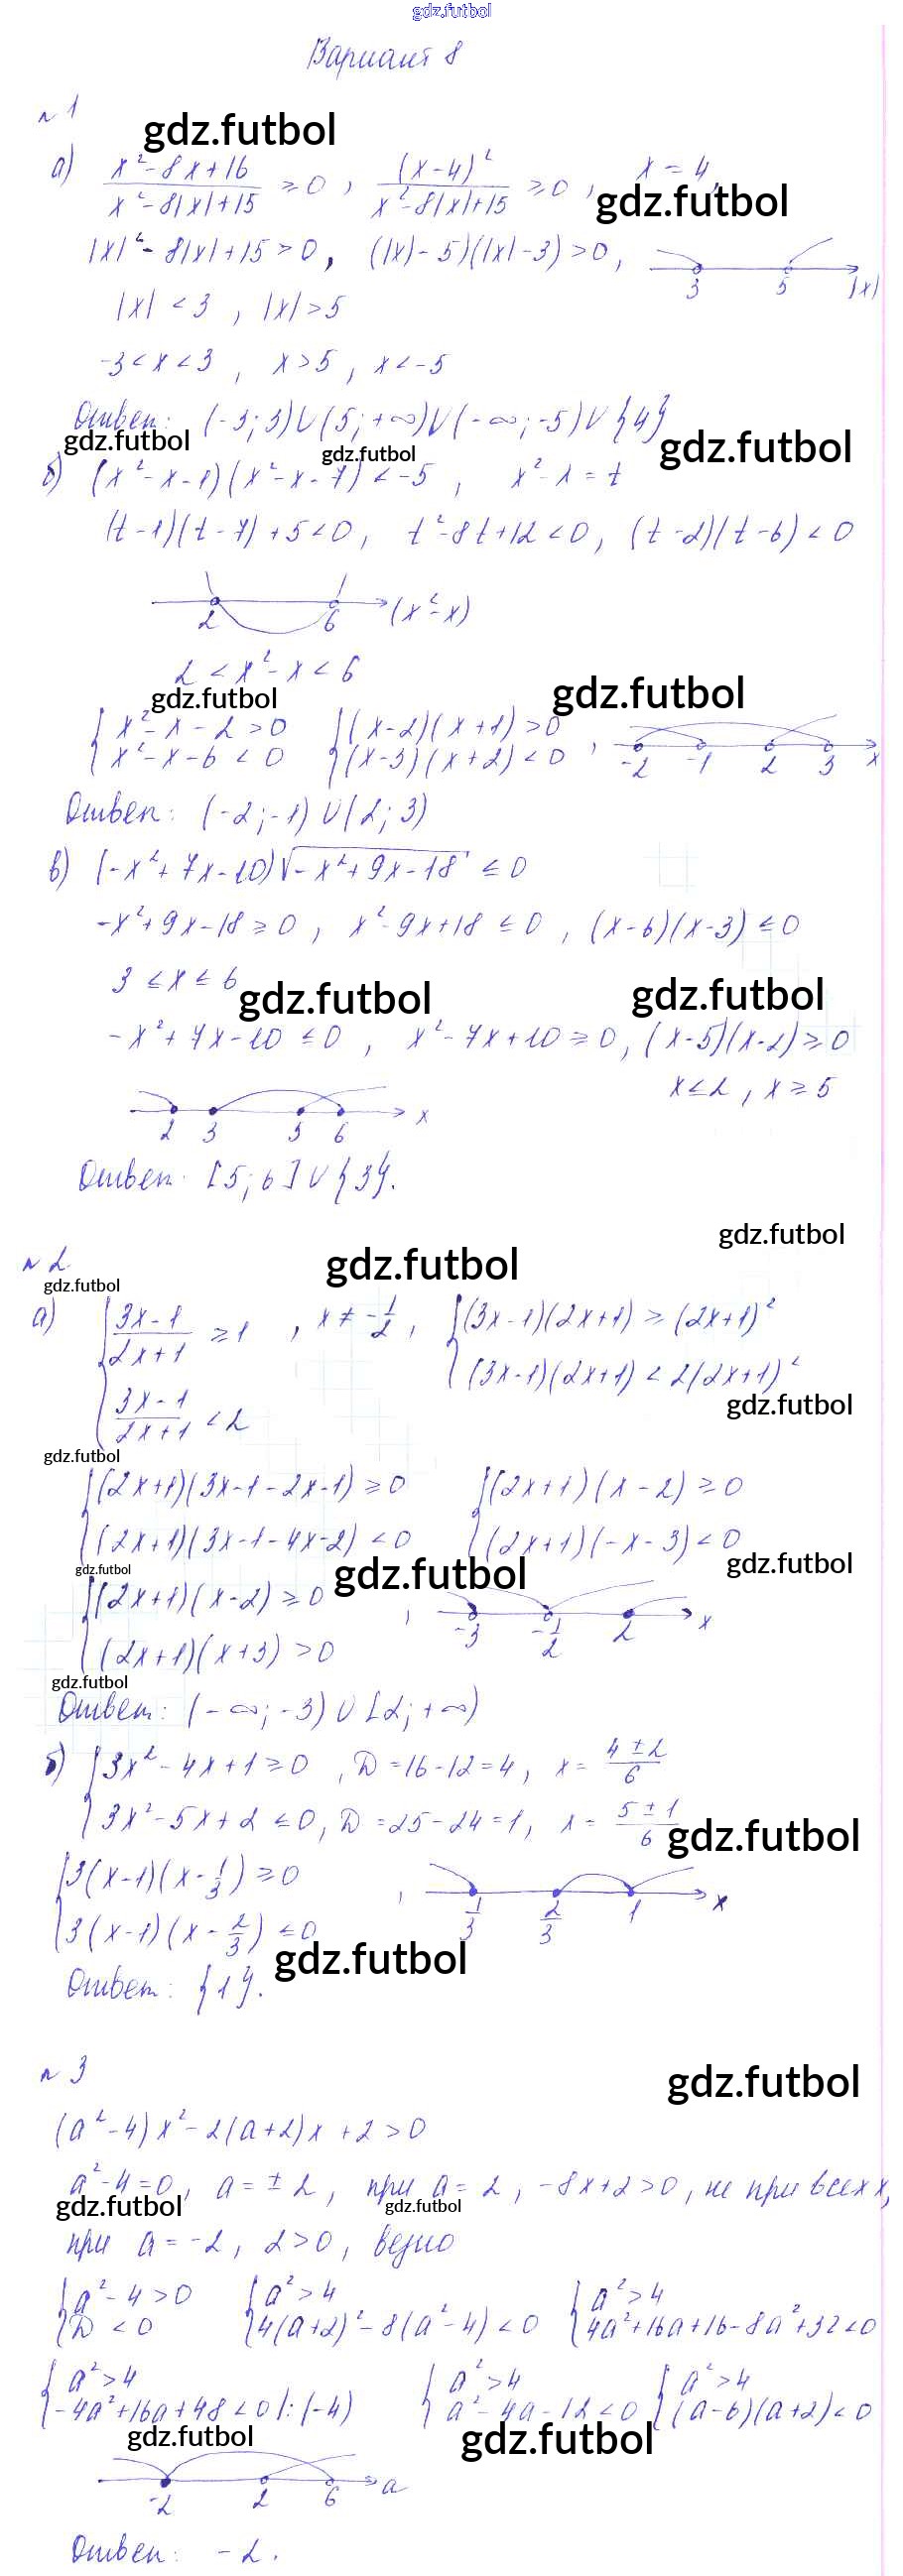 gdz.futbol
Вариант 8
№ 1
gdz.futbol
а) (x²-8x+16)/(x²-8|x|+15) ≥ 0, (x-4)²/(x²-8|x|+15) ≥ 0, x = 4,
gdz.futbol
|x|²-8|x|+15 > 0, (|x|-5)(|x|-3) > 0,
3 5 |x|
|x| < 3, |x| > 5
-3 < x < 3, x > 5, x < -5
Ответ: (-3; 3) ∪ (5; +∞) ∪ (-∞; -5) ∪ {4}
gdz.futbol gdz.futbol gdz.futbol
б) (x²-x-1)(x²-x-7) < -5, x²-x = t
(t-1)(t-7)+5 < 0, t²-8t+12 < 0, (t-2)(t-6) < 0
2 6 (x²-x)
2 < x²-x < 6
gdz.futbol gdz.futbol
{x²-x-2 > 0 {(x-2)(x+1) > 0
{x²-x-6 < 0 {(x-3)(x+2) < 0,
-2 -1 2 3 x
Ответ: (-2; -1) ∪ (2; 3)
в) (-x²+7x-10)√(-x²+9x-18) ≤ 0
-x²+9x-18 ≥ 0, x²-9x+18 ≤ 0, (x-6)(x-3) ≤ 0
3 ≤ x ≤ 6
gdz.futbol gdz.futbol
-x²+7x-10 ≤ 0, x²-7x+10 ≥ 0, (x-5)(x-2) ≥ 0
x ≤ 2, x ≥ 5
2 3 5 6 x
Ответ: [5; 6] ∪ {3}.
gdz.futbol
№ 2
gdz.futbol
gdz.futbol
а) {(3x-1)/(2x+1) ≥ 1, x ≠ -1/2, {(3x-1)(2x+1) ≥ (2x+1)²
{(3x-1)/(2x+1) < 2 {(3x-1)(2x+1) < 2(2x+1)²
gdz.futbol
gdz.futbol
{(2x+1)(3x-1-2x-1) ≥ 0 {(2x+1)(x-2) ≥ 0
{(2x+1)(3x-1-4x-2) < 0 {(2x+1)(-x-3) < 0
gdz.futbol gdz.futbol gdz.futbol
{(2x+1)(x-2) ≥ 0
{(2x+1)(x+3) > 0,
-3 -1/2 2 x
gdz.futbol
Ответ: (-∞; -3) ∪ [2; +∞)
б) {3x²-4x+1 ≥ 0, D = 16-12 = 4, x = (4±2)/6
{3x²-5x+2 ≤ 0, D = 25-24 = 1, x = (5±1)/6
gdz.futbol
{3(x-1)(x-1/3) ≥ 0
{3(x-1)(x-2/3) ≤ 0,
1/3 2/3 1 x
gdz.futbol
Ответ: {1}.
№ 3
gdz.futbol
(a²-4)x²-2(a+2)x+2 > 0
a²-4=0, a = ±2, при a = 2, -8x+2 > 0, не при всех x,
gdz.futbol gdz.futbol
при a = -2, 2 > 0, верно
{a²-4 > 0 {a² > 4 {a² > 4
{D < 0 {4(a+2)²-8(a²-4) < 0 {4a²+16a+16-8a²+32 < 0
{a² > 4 {a² > 4 {a² > 4
{-4a²+16a+48 < 0 |:(-4) {a²-4a-12 < 0 {(a-6)(a+2) < 0
gdz.futbol gdz.futbol
-2 2 6 a
Ответ: -2.